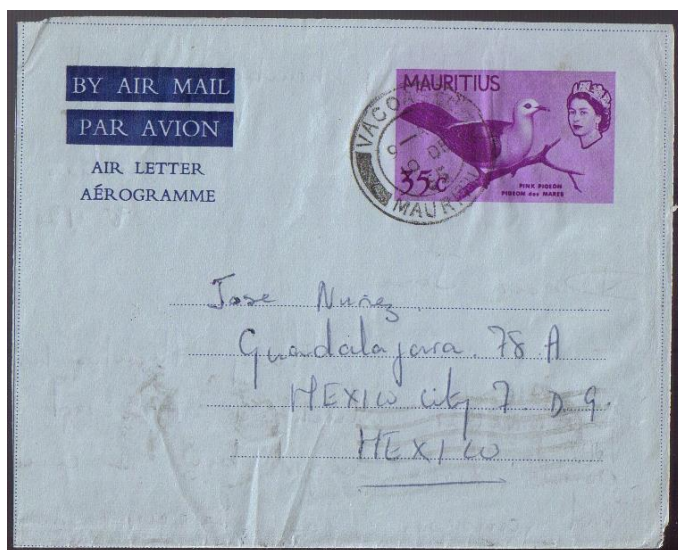 BY AIR MAIL
PAR AVION
AIR LETTER
AÉROGRAMME
MAURITIUS
35c
PINK PIGEON
PIGEON des MARES
VACOA
MAURI
Jose Nuñez
Guadalajara. 78 A
MEXICO City 7. D. F.
MEXICO